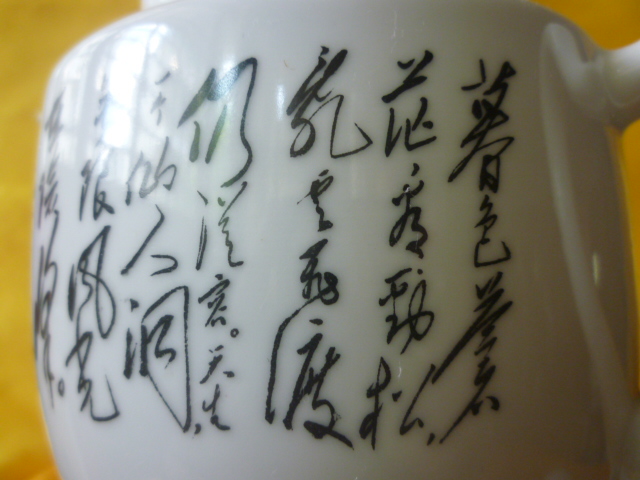 暮色苍
茫看劲松，
乱云飞渡
仍从容。天生
一个仙人洞，
无限风光
在险峰。